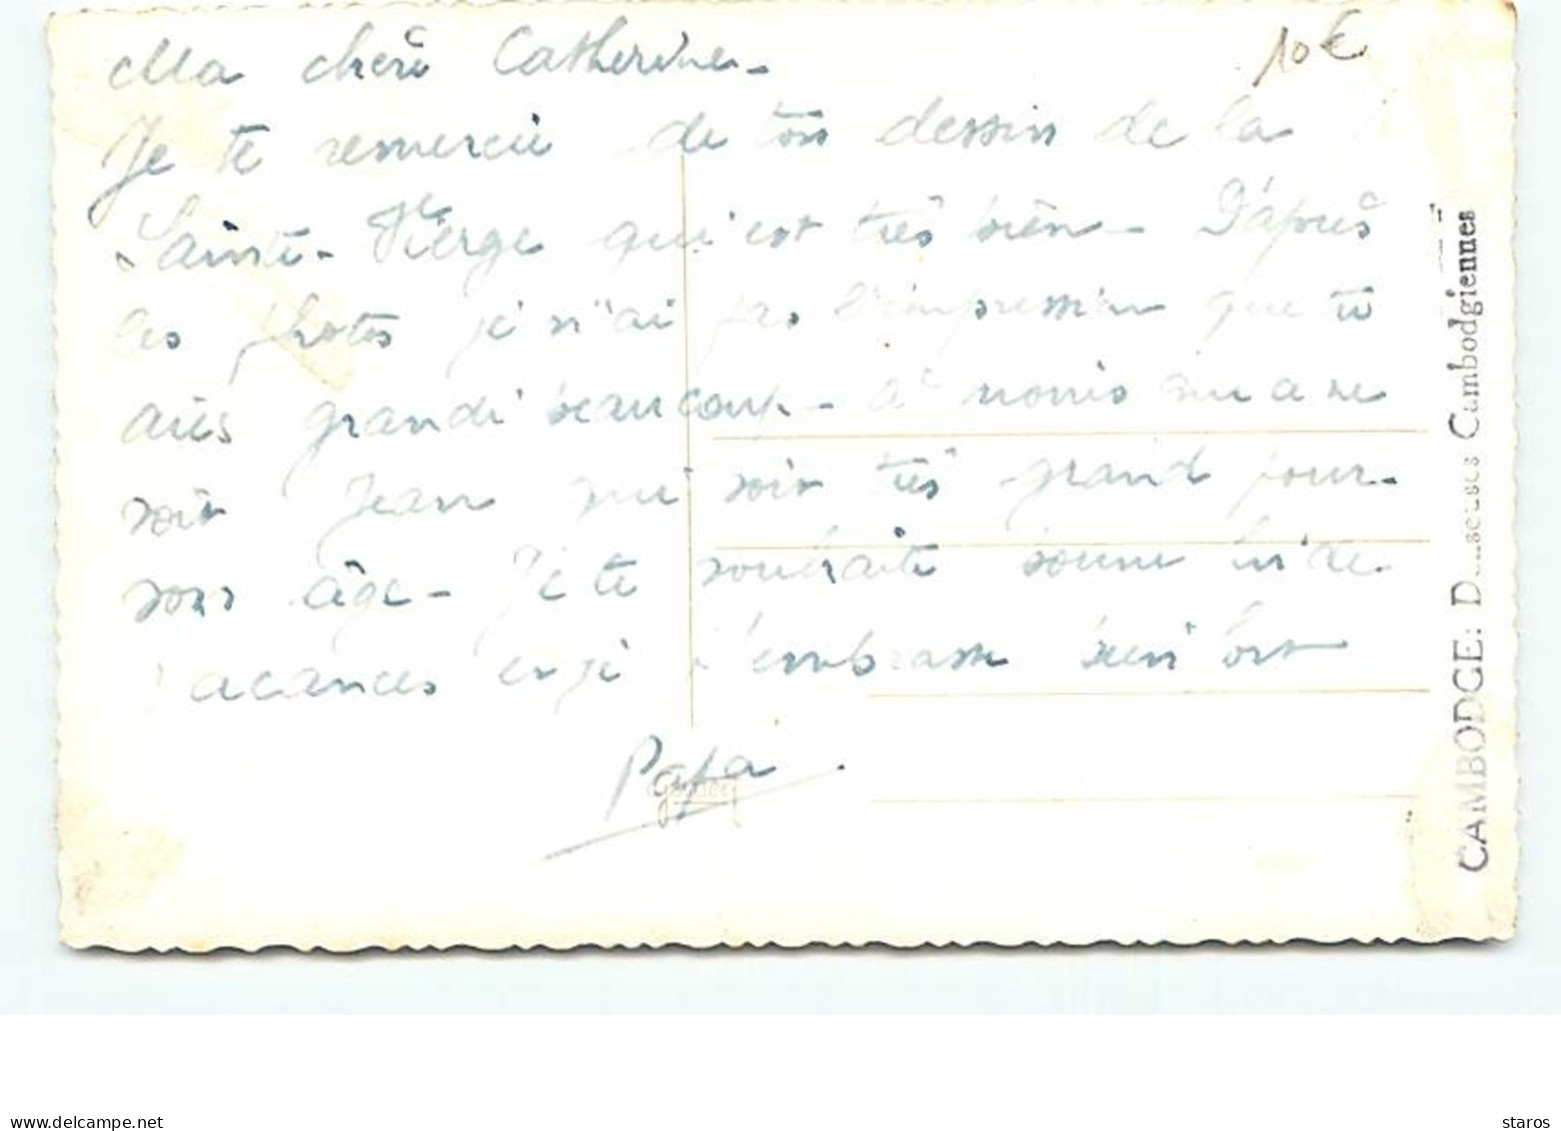 Ma chère Catherine -
10€
Je te remercie de ton dessin de la
Sainte-Vierge qui est très bien - D'après
les photos je n'ai pas l'impression que tu
aies grandi beaucoup - à moins que ce ne
soit Jean qui soit très grand pour
son âge - Je te souhaite bonne fin de
vacances et je t'embrasse bien fort
Papa
CAMBODGE: Danseuses Cambodgiennes
delcampe.net
staros